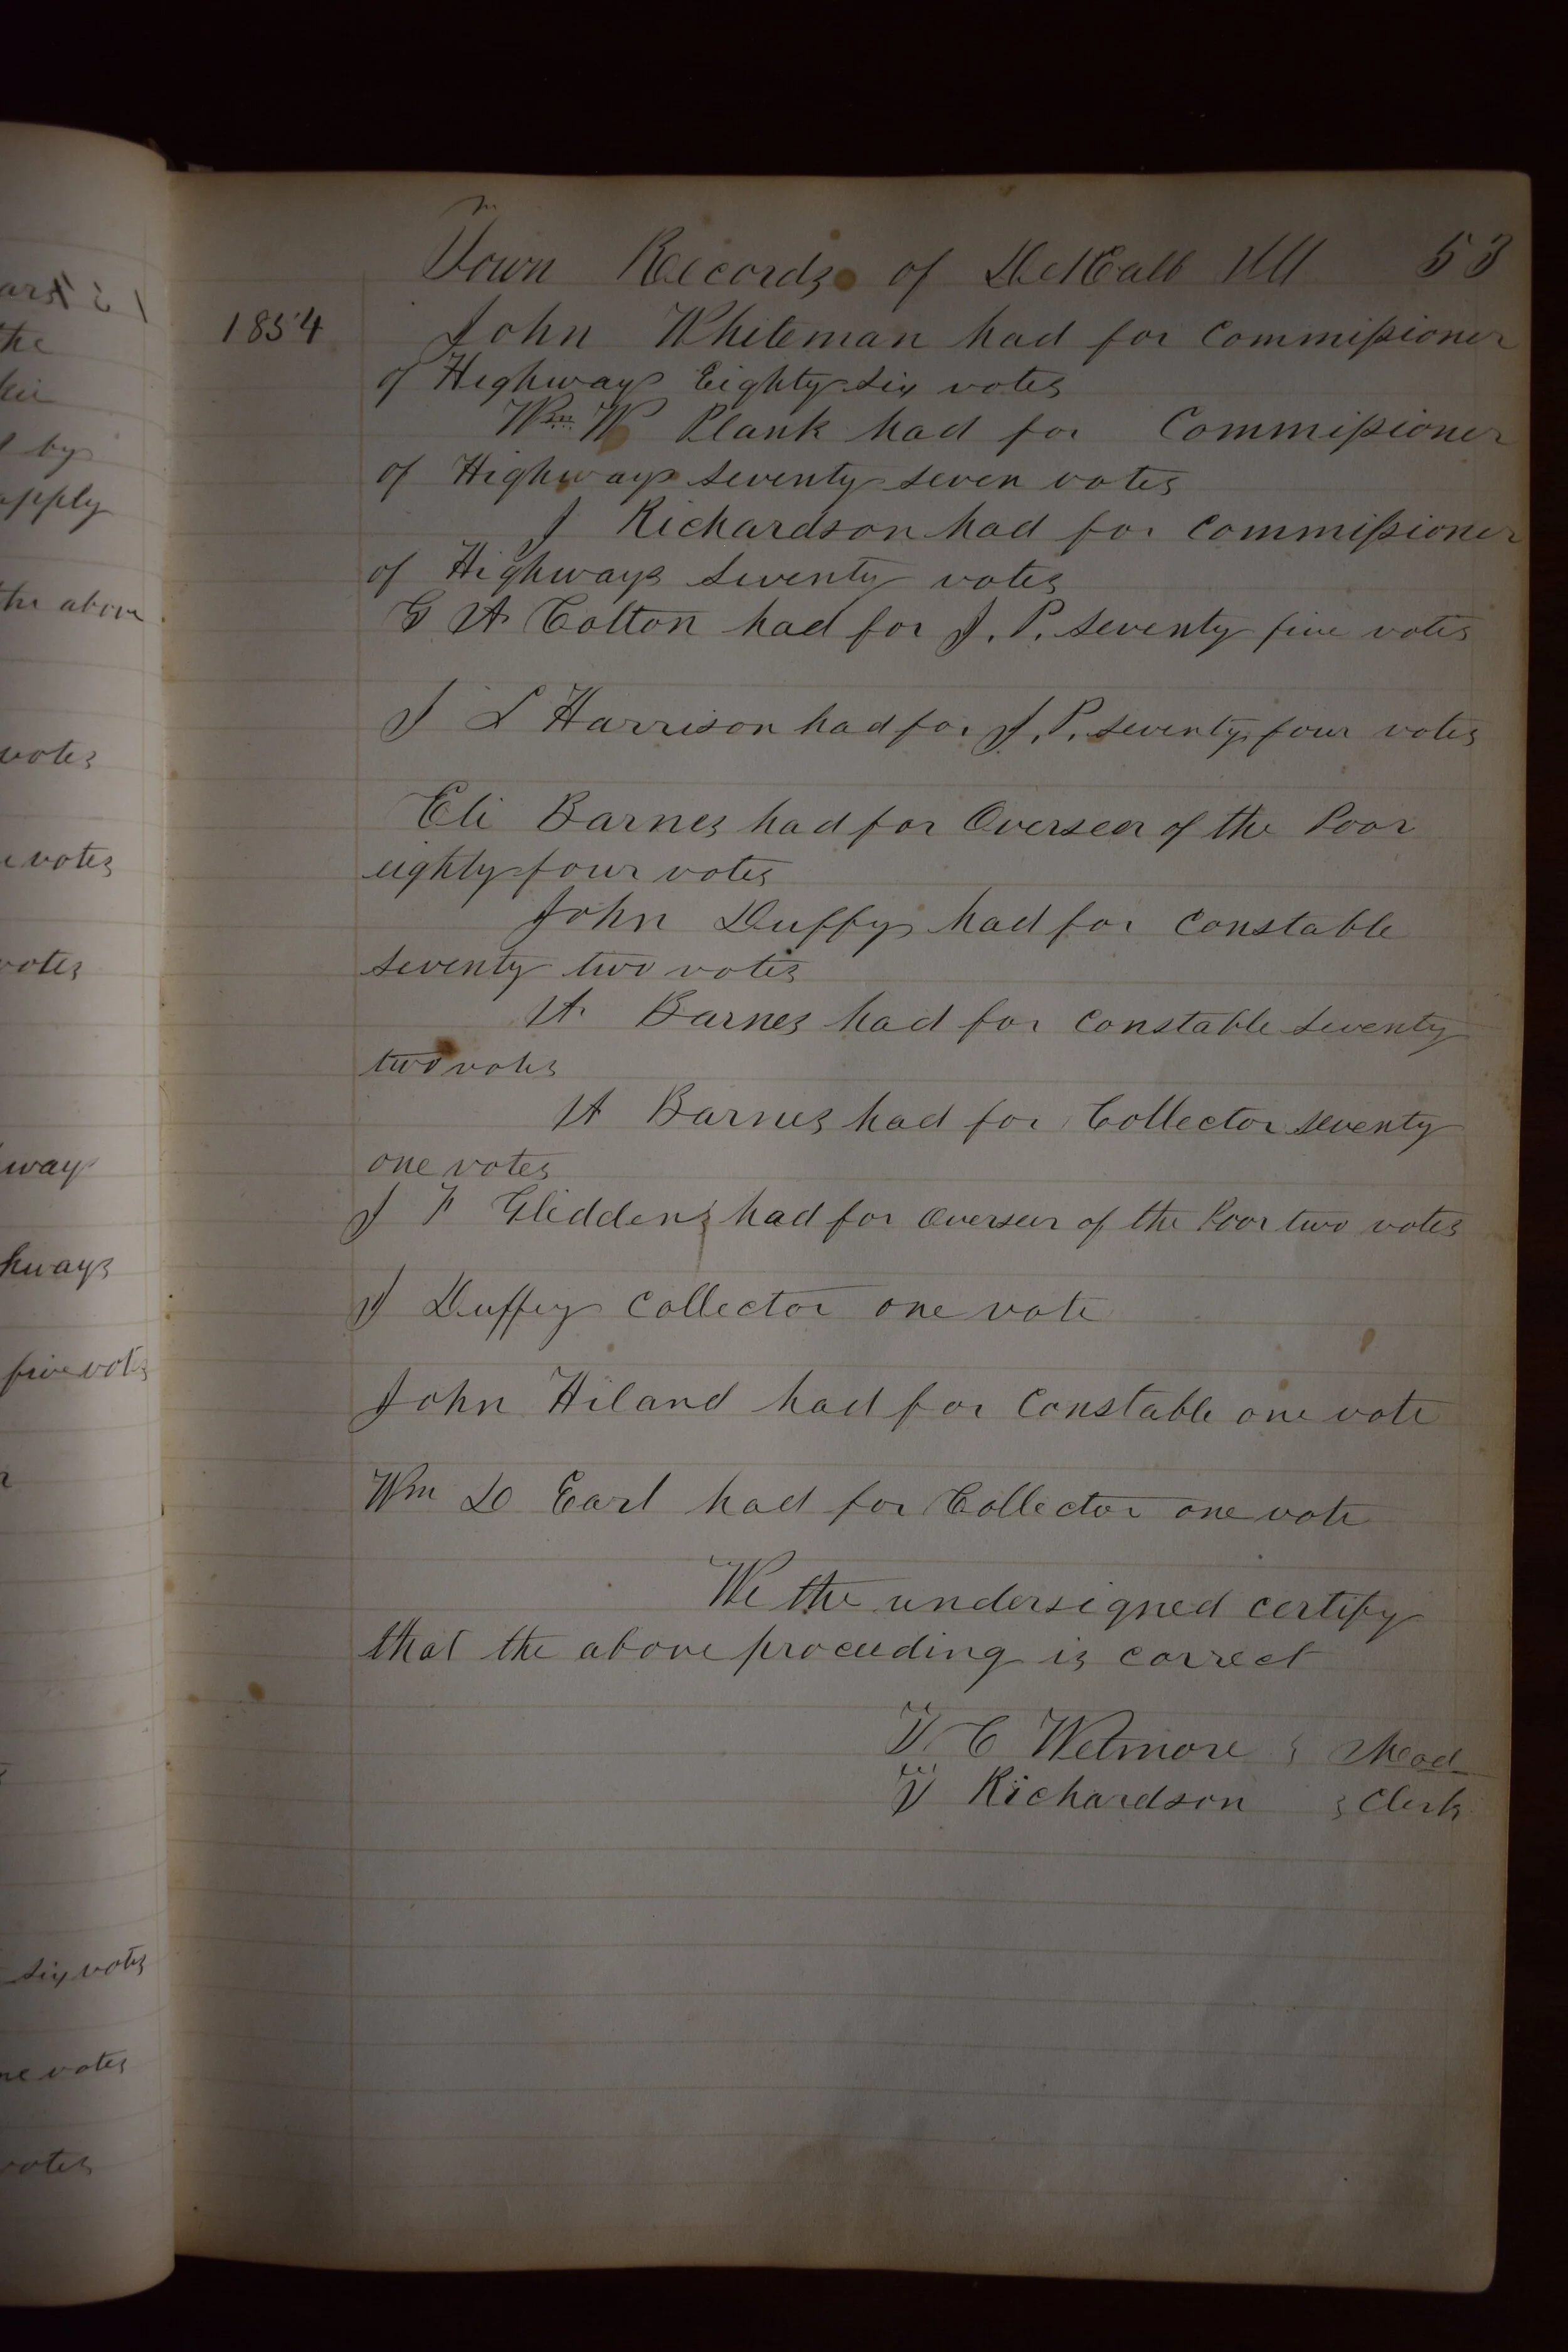 Town Records of DeKalb Ill 53
1854 John Whiteman had for Commissioner
of Highways Eighty six votes
Wm W Plank had for Commissioner
of Highways seventy seven votes
J Richardson had for Commissioner
of Highways seventy votes
G A Colton had for J. P. seventy five votes
J L Harrison had for J. P. seventy four votes
Eli Barnes had for Overseer of the Poor
eighty four votes
John Duffy had for Constable
seventy two votes
A Barnes had for Constable seventy
two votes
A Barnes had for Collector seventy
one votes
J F Gliddens had for Overseer of the Poor two votes
J Duffey Collector one vote
John Hiland had for Constable one vote
Wm D Earl had for Collector one vote
We the undersigned certify
that the above proceeding is correct
C Wetmore Mod
Richardson Clerk
the
by
apply
the above
votes
votes
votes
way
hways
five votes
six votes
votes
votes